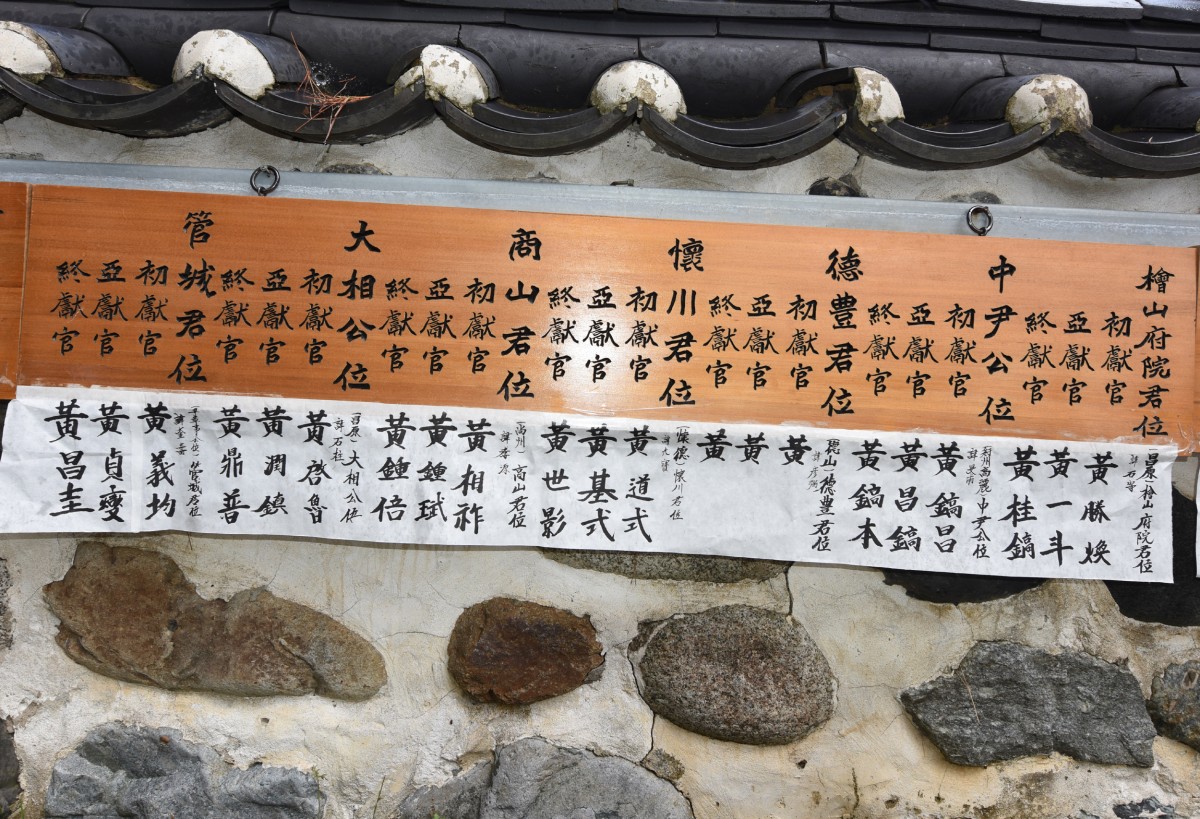 檜山府院君位
初獻官
亞獻官
終獻官
中尹公位
初獻官
亞獻官
終獻官
德豊君位
初獻官
亞獻官
終獻官
懷川君位
初獻官
亞獻官
終獻官
商山君位
初獻官
亞獻官
終獻官
大相公位
初獻官
亞獻官
終獻官
管城君位
初獻官
亞獻官
終獻官
檜山府院君位
黃勝煥
黃一斗
黃桂鎬
中尹公位
黃鎬昌
黃昌鎬
黃鎬本
德豊君位
黃
黃
黃
(懷德)懷川君位
黃道式
黃基式
黃世影
(尙州)商山君位
黃相祚
黃鍾珷
黃鍾倍
大相公位
黃啓魯
黃潤鎮
黃鼎普
管城君位
黃義均
黃貞燮
黃昌圭